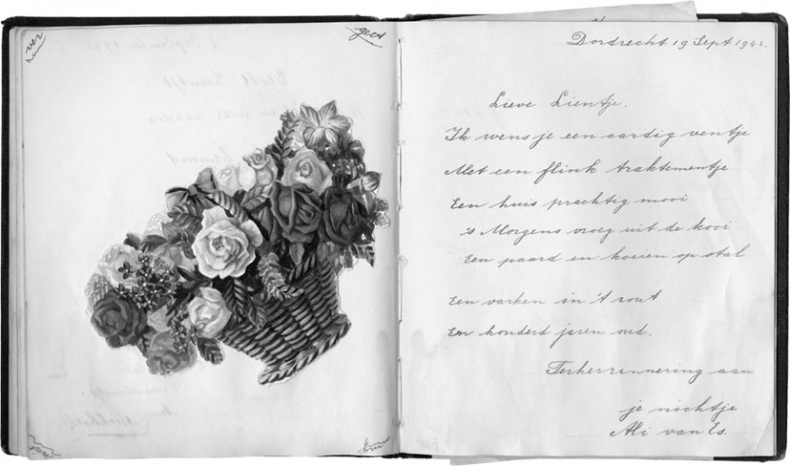 ver
geet
Dordrecht 19 Sept 1942.
Lieve Lientje.
Ik wens je een aardig ventje
Met een flink traktementje
Een huis prachtig mooi
's Morgens vroeg uit de kooi
Een paard en koeien op stal
Een varken in 't zout
En honderd jaren oud.
Terherrinnering aan
je nichtje
Ali van Es.